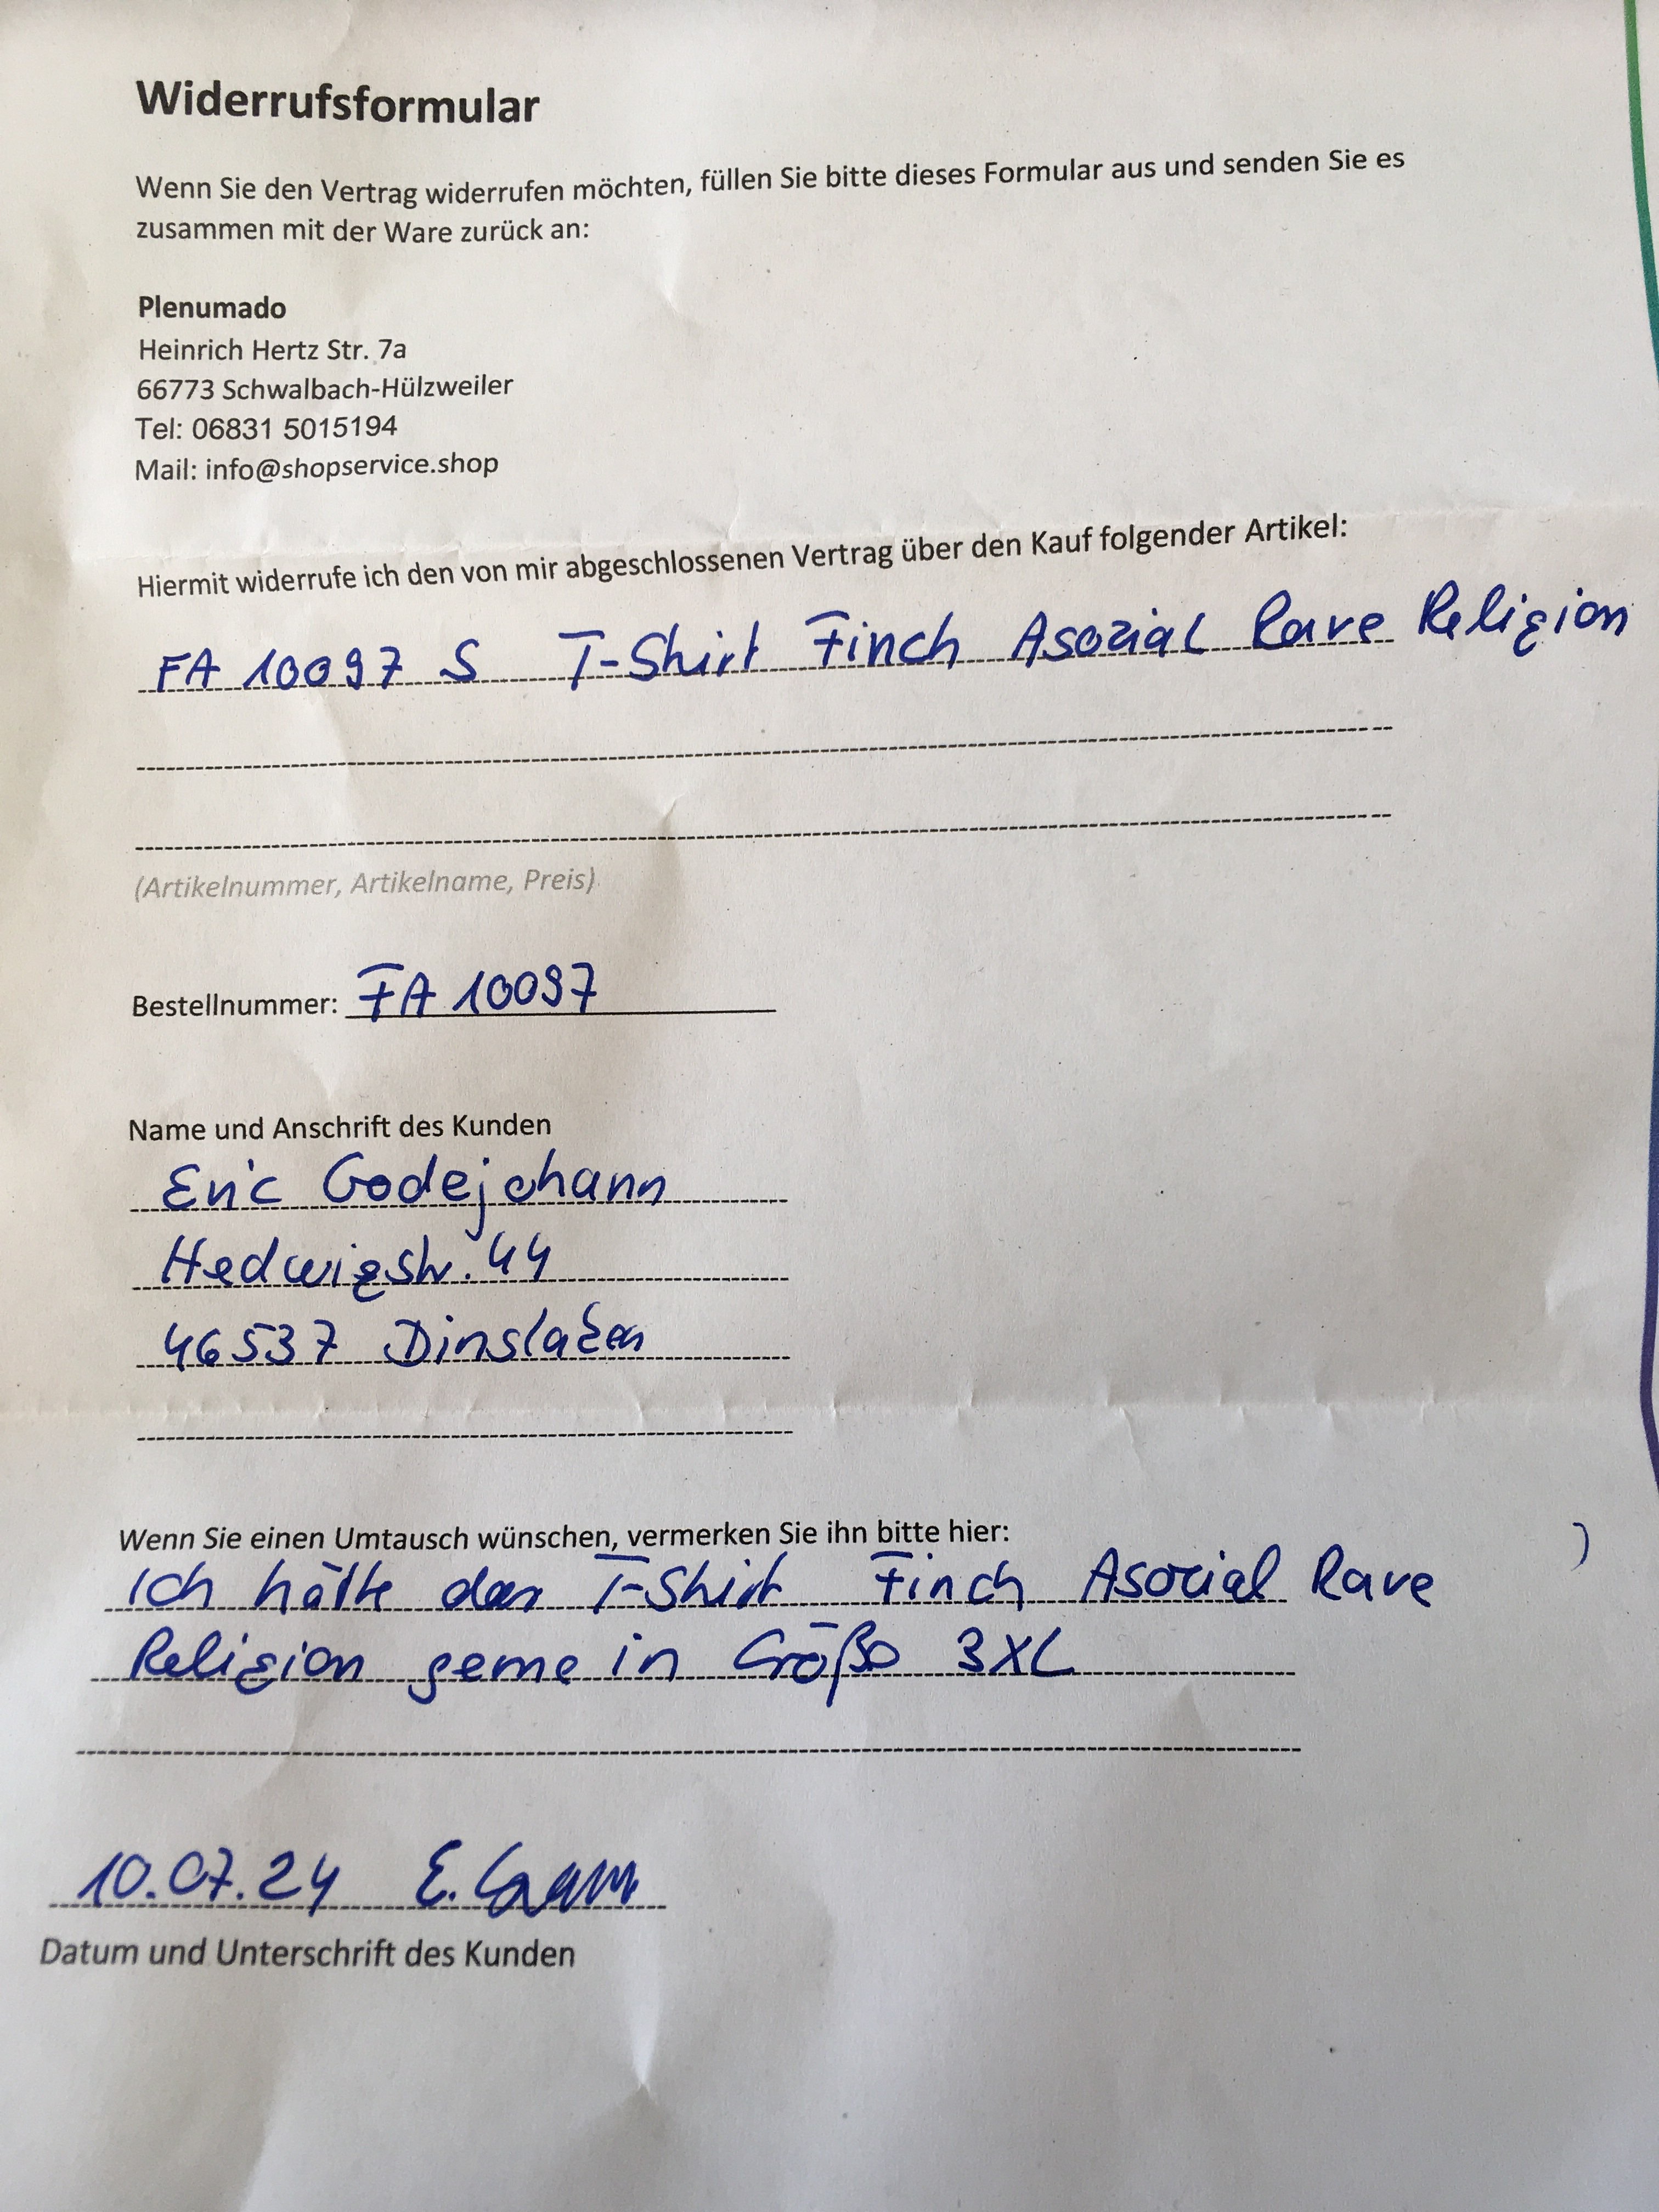 Widerrufsformular
Wenn Sie den Vertrag widerrufen möchten, füllen Sie bitte dieses Formular aus und senden Sie es
zusammen mit der Ware zurück an:
Plenumado
Heinrich Hertz Str. 7a
66773 Schwalbach-Hülzweiler
Tel: 06831 5015194
Mail: info@shopservice.shop
Hiermit widerrufe ich den von mir abgeschlossenen Vertrag über den Kauf folgender Artikel:
FA 10097 S T-Shirt Finch Asozial Rave Religion
(Artikelnummer, Artikelname, Preis)
Bestellnummer: FA 10097
Name und Anschrift des Kunden
Eric Godejohann
Hedwigstr. 44
46537 Dinslaken
Wenn Sie einen Umtausch wünschen, vermerken Sie ihn bitte hier:
Ich hätte das T-Shirt Finch Asozial Rave
Religion gerne in Größe 3XL
10.07.24 E.
Datum und Unterschrift des Kunden